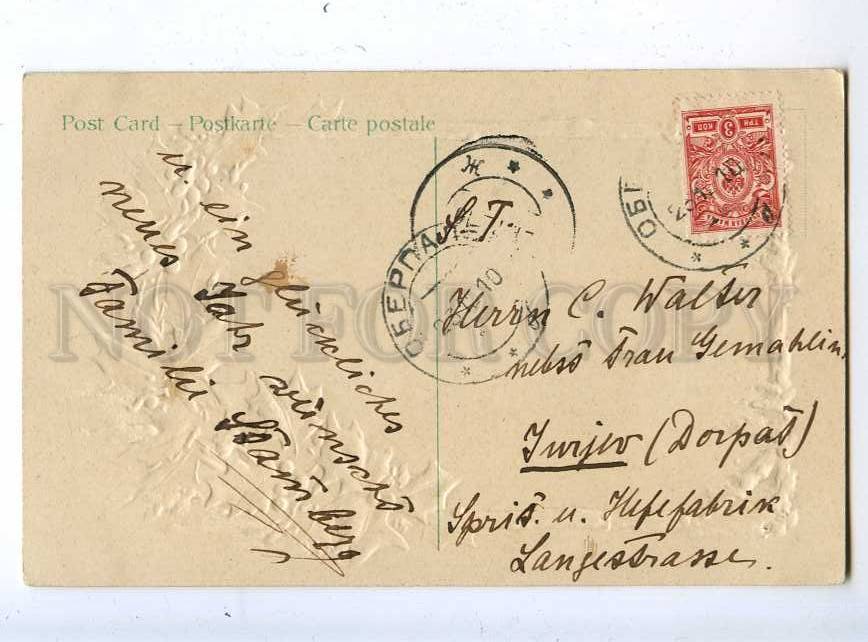 Post Card — Postkarte — Carte postale
u. ein glückliches
neues Jahr wünscht
Familie
S. T.
Herrn C. Walter
nebst Frau Gemahlin.
Jurjev (Dorpat)
Sprit. u. Hefefabrik
Langestrasse.
ОБЕРПА
10
ОБ
10
ТРИ 3 КОП
NOT FOR COPY